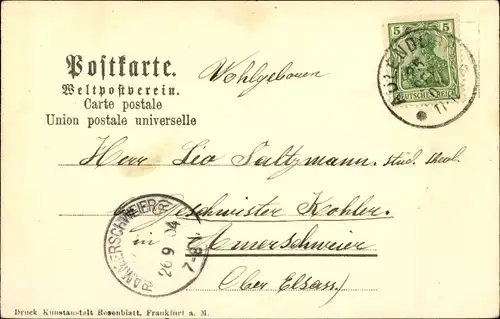 Postkarte.
Weltpostverein.
Carte postale
Union postale universelle
Wohlgeboren
5 5
DEUTSCHES REICH
Herr Leo Saltzmann, stud. theol.
Geschwister Kohler
in Amerschweier
Ober Elsass.
AMMERSCHWEIER
26 9 04
7-8
Druck Kunstanstalt Rosenblatt, Frankfurt a. M.